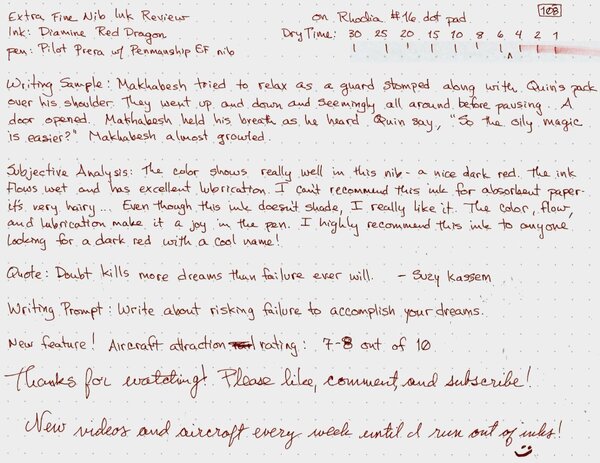 Extra Fine Nib Ink Review on Rhodia #16 dot pad 108
Ink: Diamine Red Dragon Dry Time: 30 25 20 15 10 8 6 4 2 1
pen: Pilot Prera w/ Penmanship EF nib
Writing Sample: Makhabesh tried to relax as a guard stomped along with Quin's pack
over his shoulder. They went up and down and seemingly all around before pausing... A
door opened. Makhabesh held his breath as he heard Quin say, "So the oily magic
is easier?" Makhabesh almost growled.
Subjective Analysis: The color shows really well in this nib - a nice dark red. The ink
flows wet and has excellent lubrication. I can't recommend this ink for absorbent paper-
it's very hairy... Even though this ink doesn't shade, I really like it. The color, flow,
and lubrication make it a joy in the pen. I highly recommend this ink to anyone
looking for a dark red with a cool name!
Quote: Doubt kills more dreams than failure ever will. - Suzy Kassem
Writing Prompt: Write about risking failure to accomplish your dreams.
New feature! Aircraft attraction rating: 7-8 out of 10
Thanks for watching! Please like, comment, and subscribe!
New videos and aircraft every week until I run out of inks!